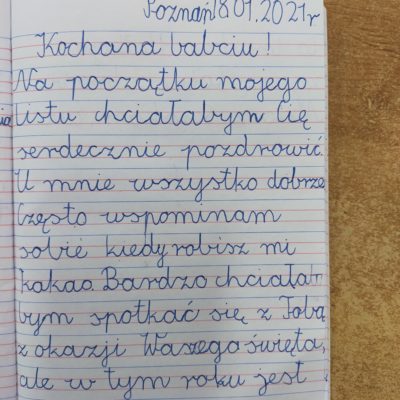 Poznań 18 01.2021r
Kochana babciu!
Na początku mojego
listu chciałabym Cię
serdecznie pozdrowić.
U mnie wszystko dobrze
Często wspominam
sobie kiedy robisz mi
kakao. Bardzo chciała-
bym spotkać się z Tobą
z okazji Waszego święta,
ale w tym roku jest